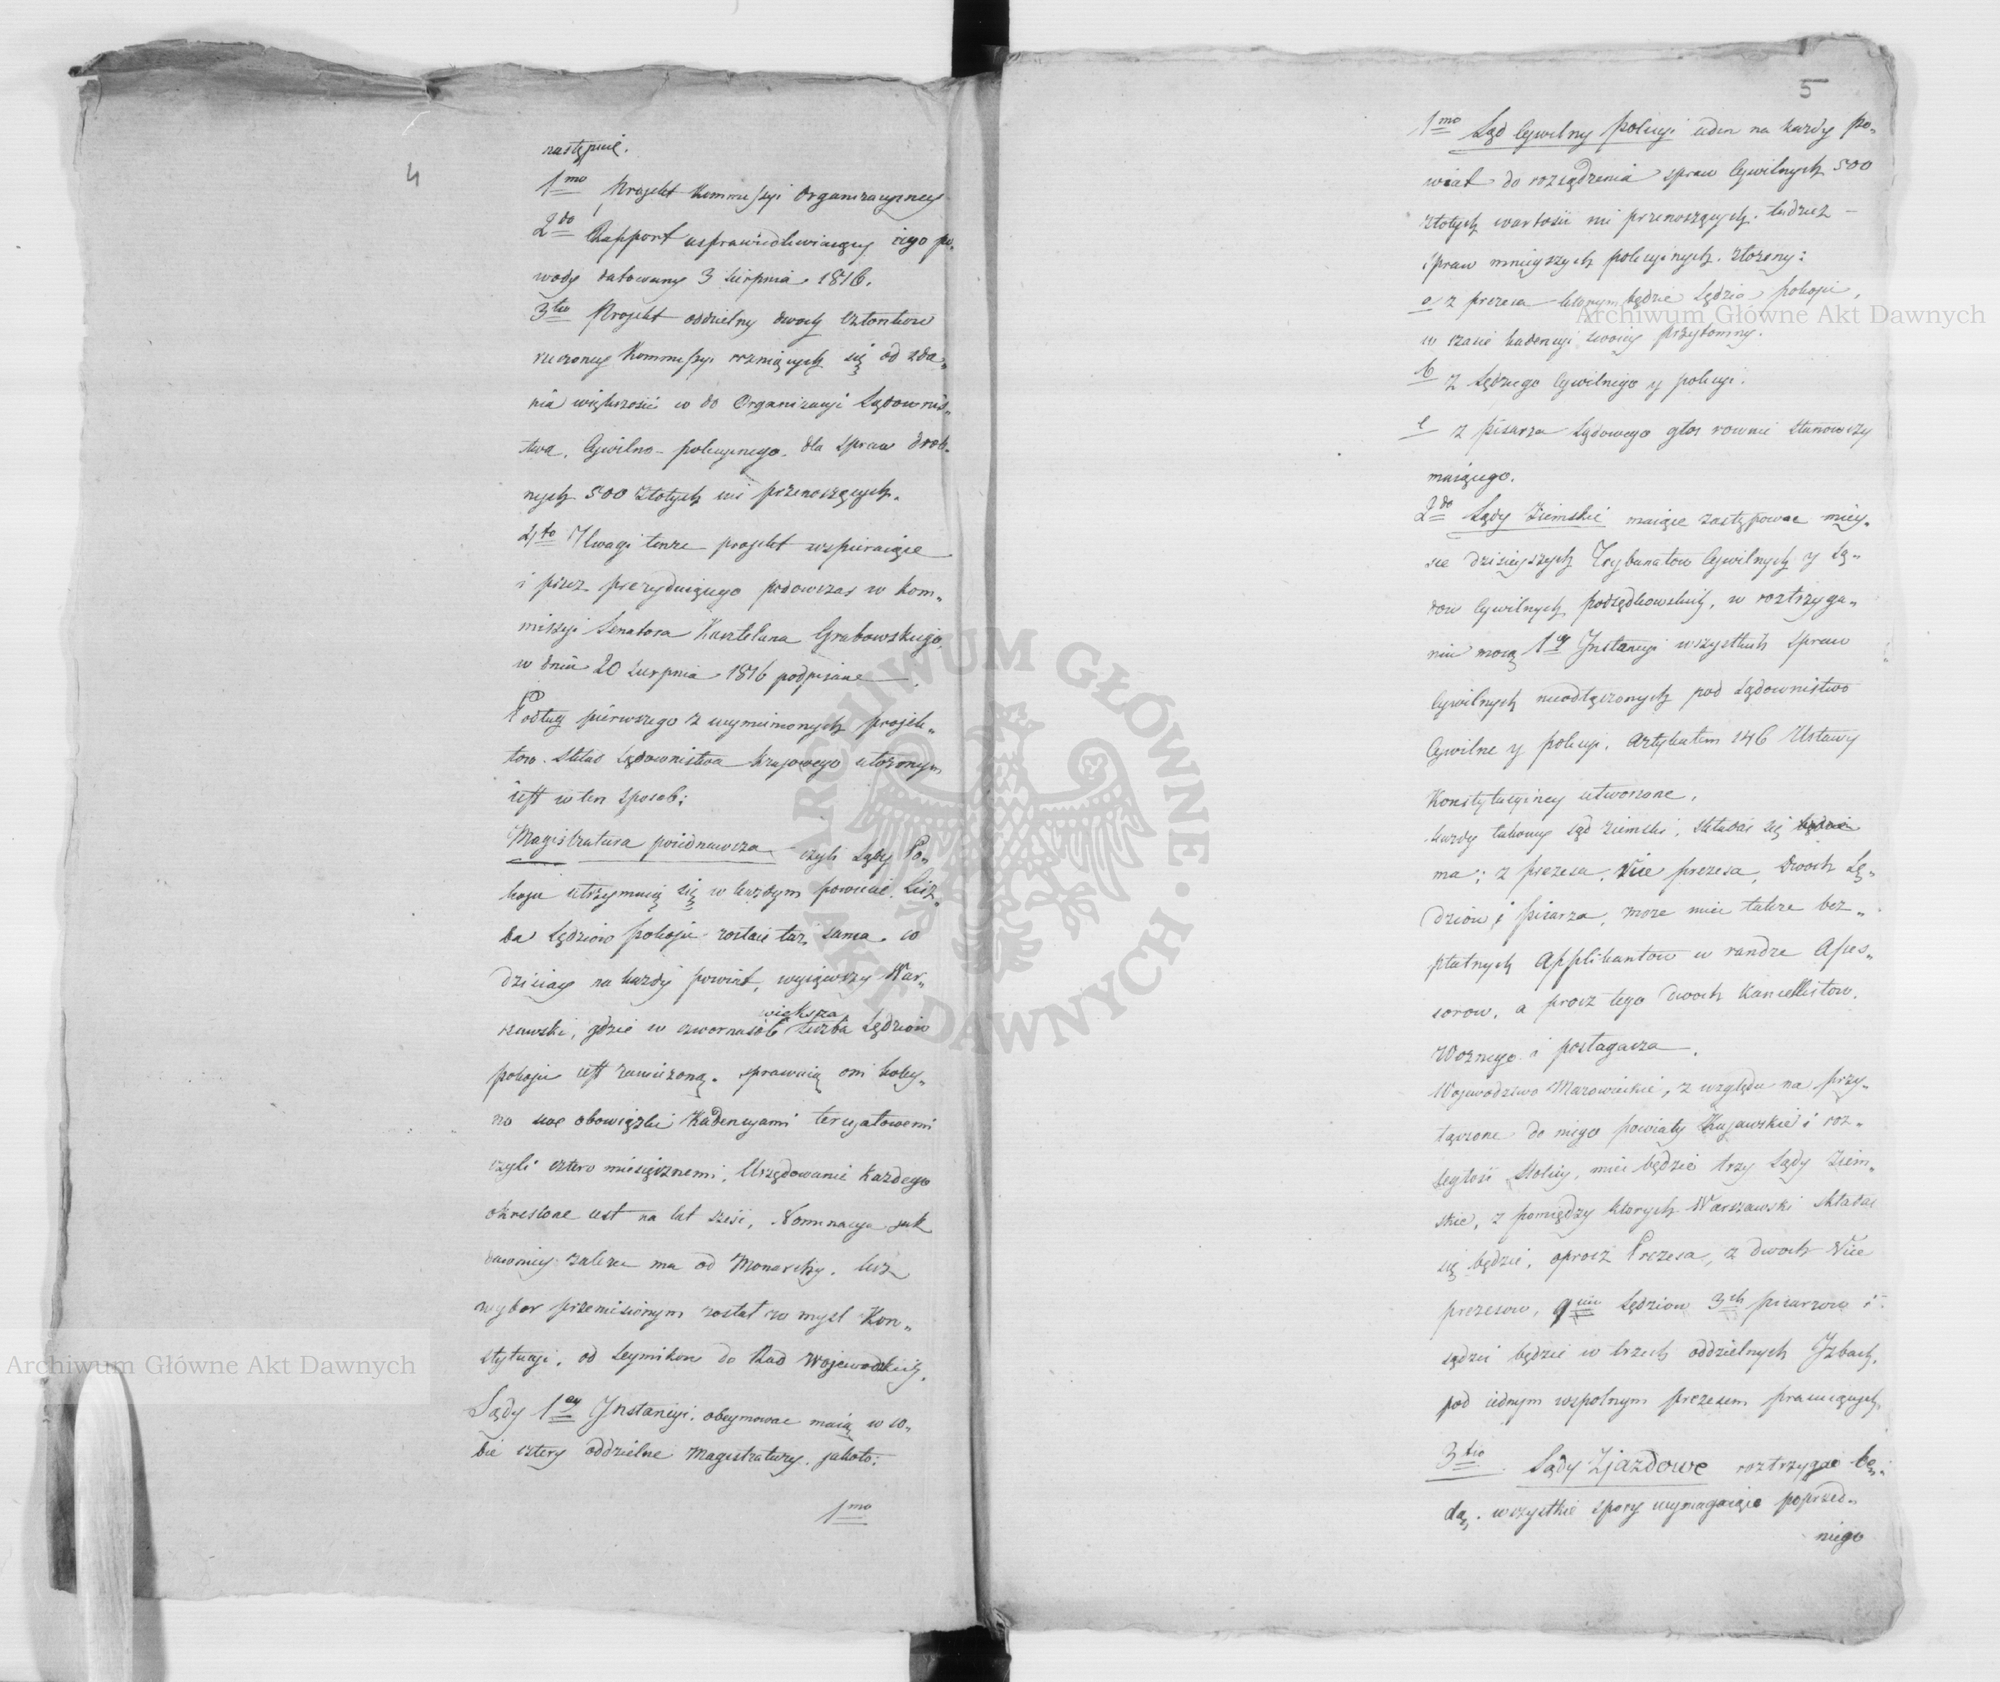 4
następnie.
1mo Projekt Kommissyi Organizacyiney
2do Rapport usprawiedliwiaiący iego po-
wody datowany 3 Sierpnia 1816.
3tio Projekt oddzielny dwoch Członkow
rzeczoney Kommissyi rożniących się od zda-
nia większości w do Organizacyi Sądownic-
twa, Cywilno-policyinego, dla spraw drob-
nych 500 złotych nie przenoszących.
4to Uwagi tenże projekt wspieraiące
i przez prezyduiącego podowczas w Kom-
missyi Senatora Kasztelana Grabowskiego,
w dniu 20 Sierpnia 1816 podpisane
Podług pierwszego z wymienionych projek-
tow Skład Sądownictwa Krajowego ułożonym
iest w ten sposob;
Magistratura poiednawcza czyli Sądy Po-
koju utrzymuią się w każdym powiecie. Licz-
ba Sędziow pokoju zostaie taż sama, co
dzisiay na każdy powiat, wyiąwszy War-
szawski, gdzie w czwornasob większa liczba Sędziow
pokoju iest zamieszoną. Sprawuią oni koley-
no swe obowiązki Kadencyami tercyałowemi
czyli cztero miesięcznemi, Urzędowanie każdego
okreslone iest na lat sześć, Nominacya jak
dawniey zależeć ma od Monarchy, lecz
wybor przeniesionym został w myśl Kon-
stytucyi, od Seymikow do Rad Wojewodzkich.
Sądy 1ey Instancyi, obeymować maią w so-
bie cztery oddzielne Magistratury, jakoto:
1mo
5
1mo Sąd Cywilny policyi ieden na każdy po-
wiat do rozsądzenia spraw Cywilnych 500
złotych wartości nie przenoszących, tudzież
spraw mnieyszych policyinych, złożony:
a z prezesa ktorym będzie Sędzia pokoju,
w czasie kadencyi swoiey przytomny.
b z Sędziego Cywilnego y policyi.
c z pisarza Sądowego głos rownie stanowczy
maiącego.
2do Sądy Ziemskie maiące zastępować miey-
sce dzisieyszych Trybunałow Cywilnych y Są-
dow Cywilnych podsędkowskich, w roztrzyga-
niu mocą 1ey Instancyi wszystkich spraw
Cywilnych nieodłączonych pod Sądownictwo
Cywilne y policyi, artykułem 146 Ustawy
Konstytucyiney utworzone,
każdy takowy sąd ziemski, składać się będzie
ma; z prezesa, Vice prezesa, dwoch Sę-
dziow i pisarza, może mieć także bez-
płatnych Applikantow w randze Asses-
sorow, a procz tego dwoch Kancellistow,
Woznego i posługacza.
Wojewodztwo Mazowieckie, z względu na przy-
łączone do niego powiaty Kujawskie i roz-
ległość Stolicy, mieć będzie trzy Sądy Ziem-
skie, z pomiędzy ktorych Warszawski składać
się będzie, oprocz Prezesa, z dwoch Vice
prezesow, 9ciu Sędziow 3ch pisarzow i
sądzić będzie w trzech oddzielnych Izbach,
pod iednym wspolnym prezesem pracuiących
3tio Sądy Zjazdowe roztrzygać bę-
dą, wszystkie spory wymagaiące poprzed-
niego
Archiwum Główne Akt Dawnych
Archiwum Główne Akt Dawnych
ARCHIWUM GŁÓWNE • AKT DAWNYCH •